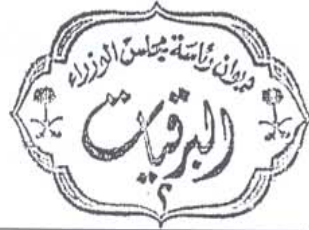 ديوان رئاسة مجلس الوزراء
البرقيات
٢